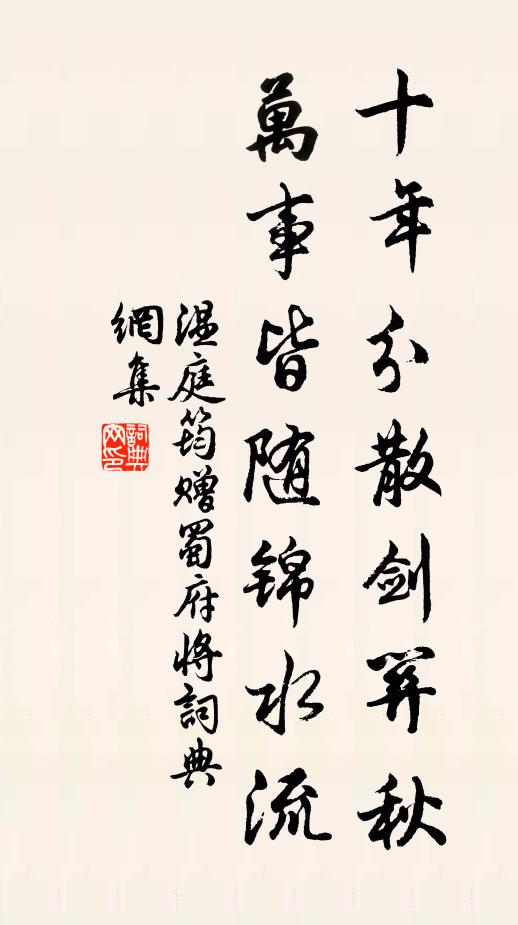 十年分散剑关秋
萬事皆随锦水流
温庭筠赠蜀府将詞典
網集
詞典
网印